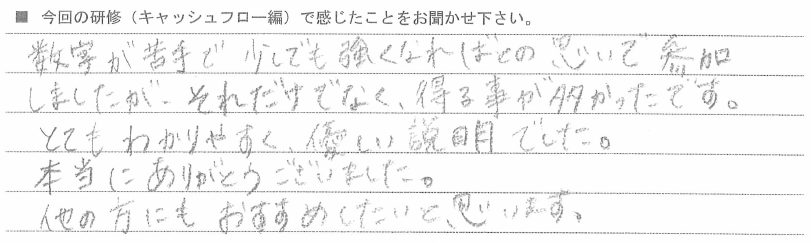 ■ 今回の研修（キャッシュフロー編）で感じたことをお聞かせ下さい。
数字が苦手で 少しでも強くなればとの思いで参加
しましたが、それだけでなく、得る事が多かったです。
とてもわかりやすく、優しい説明でした。
本当にありがとうございました。
他の方にもおすすめしたいと思います。